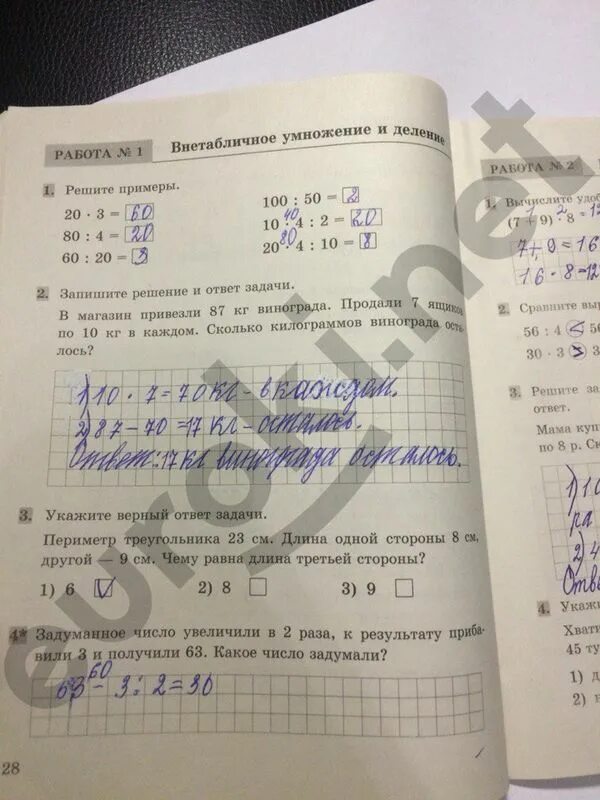 РАБОТА № 1
Внетабличное умножение и деление
1. Решите примеры.
20 · 3 = 60
80 : 4 = 20
60 : 20 = 3
100 : 50 = 2
40
10 · 4 : 2 = 20
80
20 · 4 : 10 = 8
2. Запишите решение и ответ задачи.
В магазин привезли 87 кг винограда. Продали 7 ящиков
по 10 кг в каждом. Сколько килограммов винограда оста-
лось?
1) 10 · 7 = 70 кг – в каждом.
2) 87 – 70 = 17 кг – осталось.
Ответ: 17 кг винограда осталось.
3. Укажите верный ответ задачи.
Периметр треугольника 23 см. Длина одной стороны 8 см,
другой — 9 см. Чему равна длина третьей стороны?
1) 6 V 2) 8 3) 9
4* Задуманное число увеличили в 2 раза, к результату приба-
вили 3 и получили 63. Какое число задумали?
60
63 – 3 : 2 = 30
28
РАБОТА № 2
1. Вычислите
(7 + 9) · 8 = 12
7 + 9 = 16
16 · 8 = 12
2. Сравните
56 : 4 < 56
30 · 3 > 3
3. Решите
ответ.
Мама
по 8 р.
1) 10
ра
2) 4
4.
45
1)
2)
euroki.net